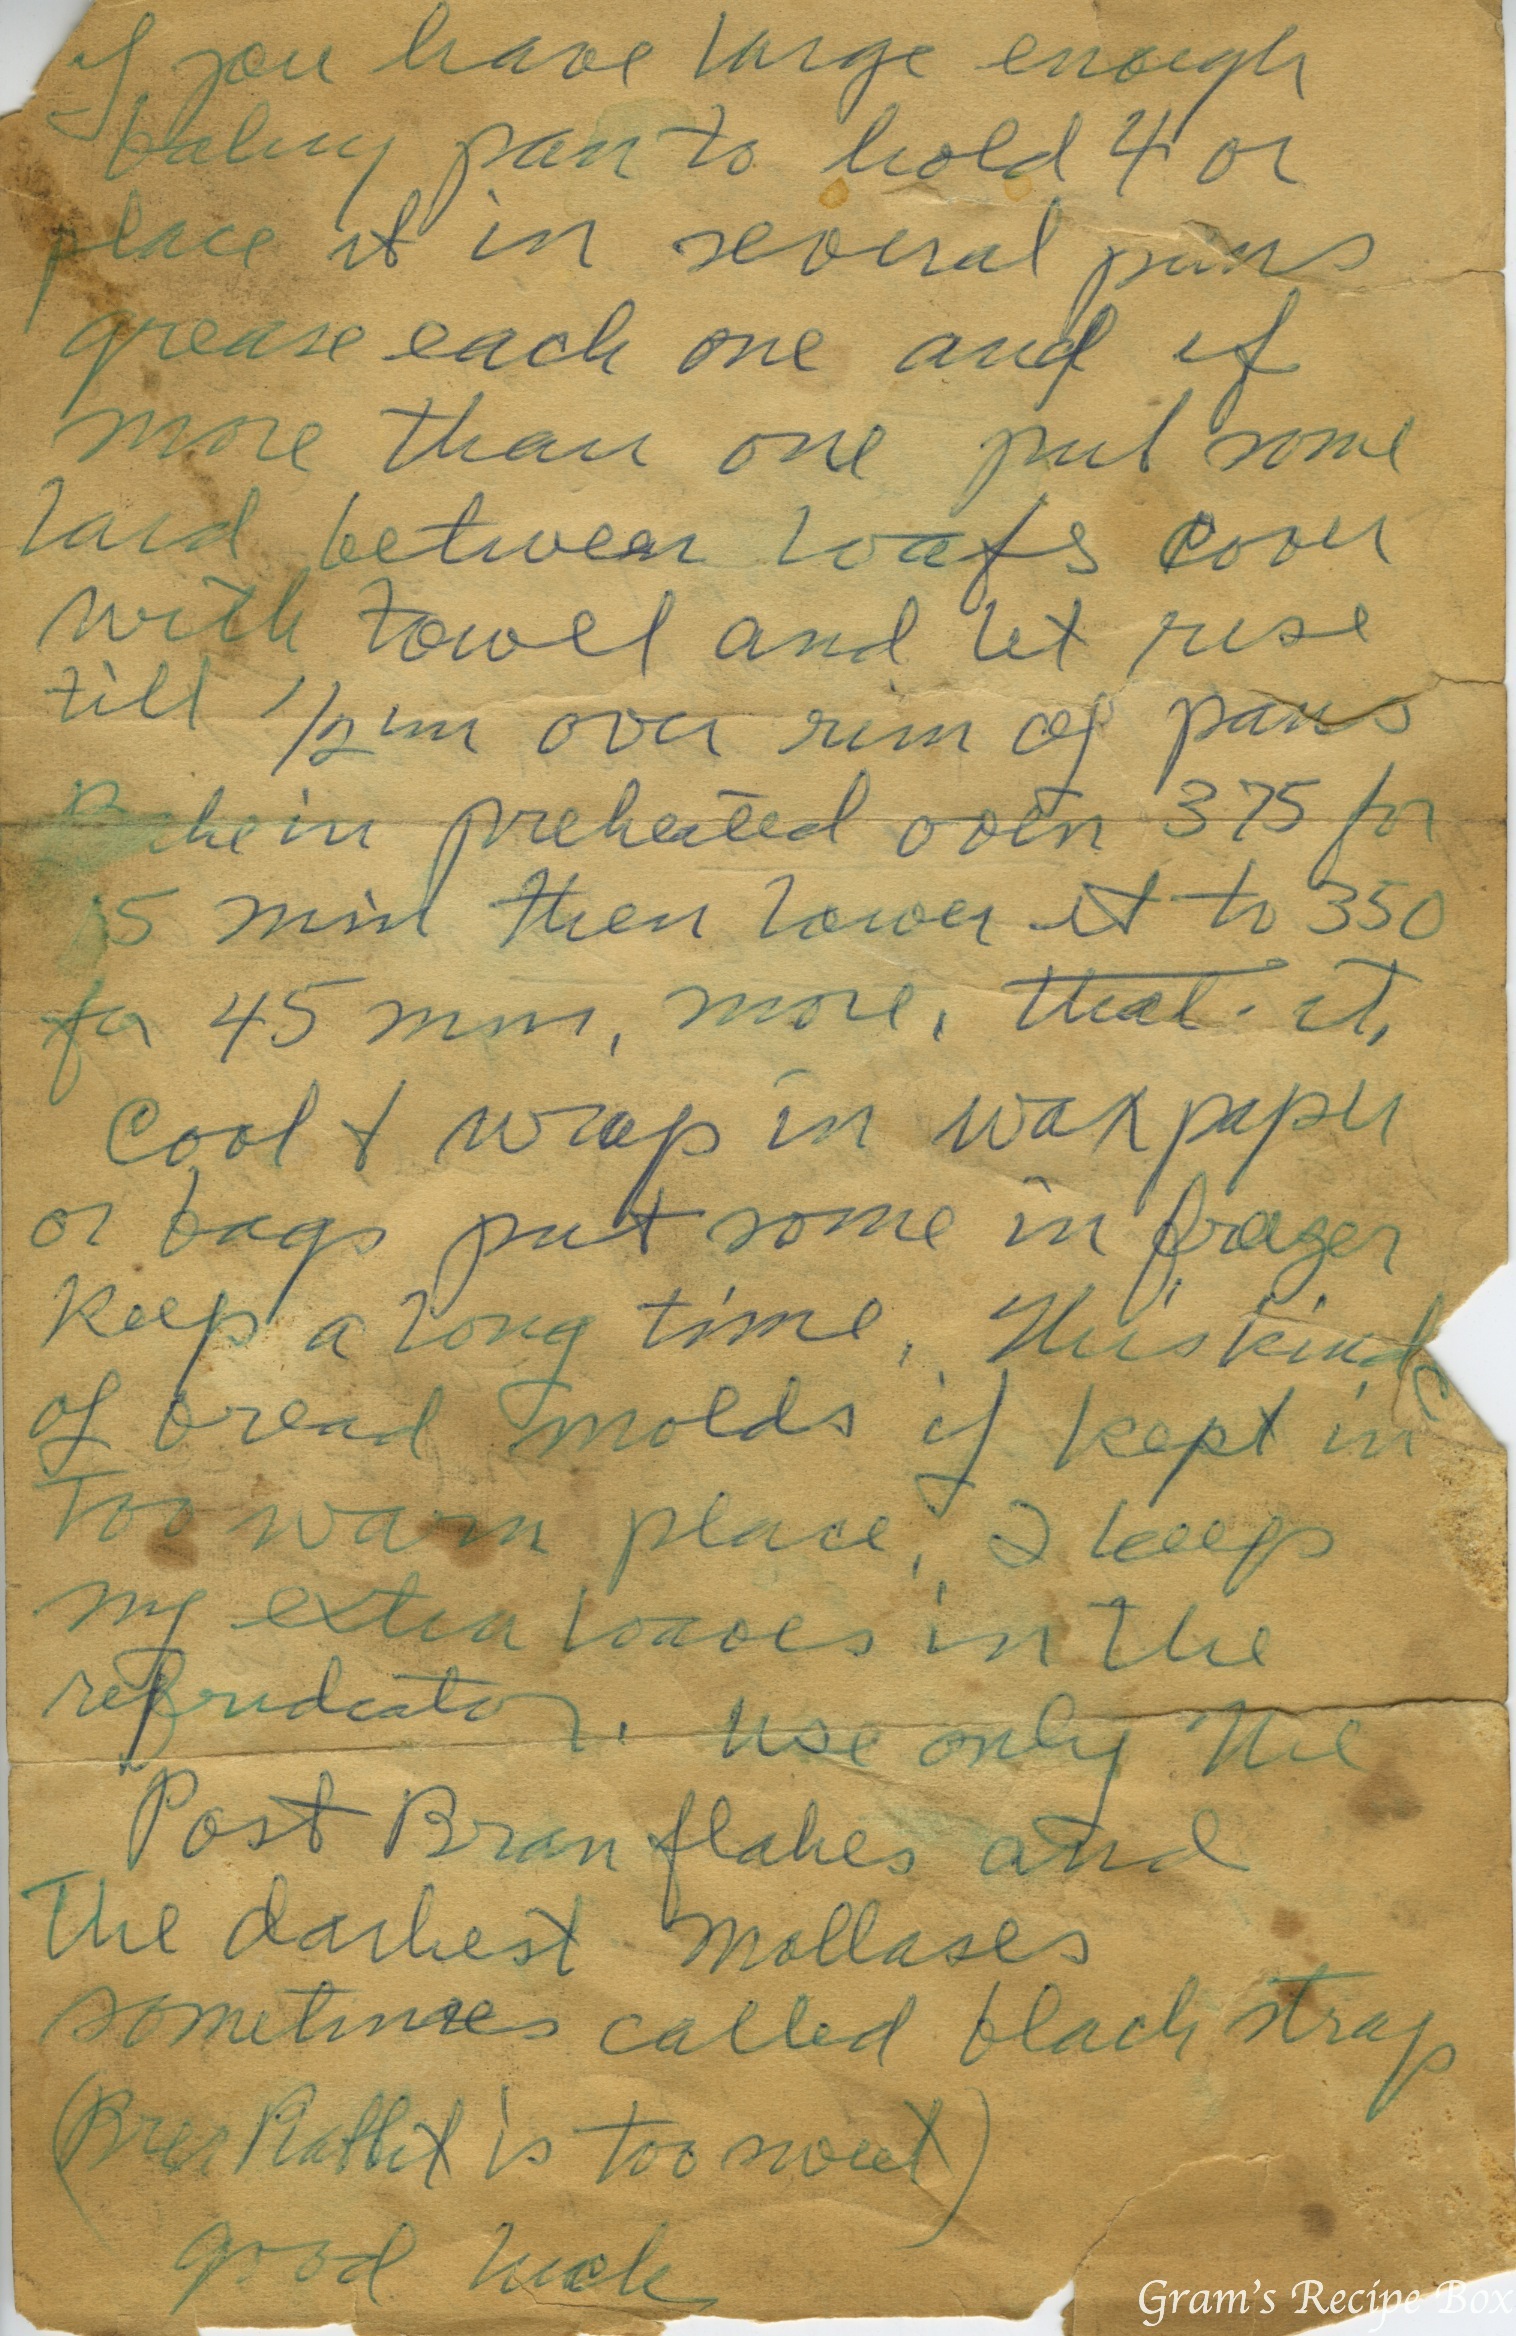 if you have large enough
baking pan to hold 4 or
place it in several pans
grease each one and if
more than one put some
lard between loafs cover
with towel and let rise
till 1/2 in over rim of pans
Bake in preheated oven 375 for
15 min then lower it to 350
for 45 min, more, that it,
Cool + wrap in wax paper
or bags put some in frezer
keep a long time, This kind
of bread molds if kept in
too warm place, I keep
my extra loaves in the
use only the
Post Bran flakes and
The darkest mollases
sometimes called black strap
(Brer Rabbit is too sweet)
good luck
Gram's Recipe Box